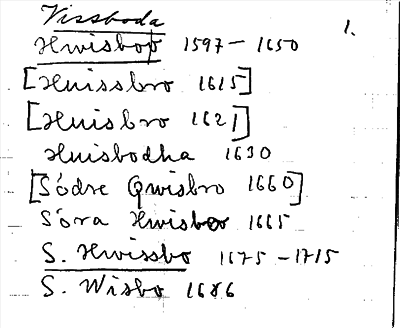 Vissboda 1.
Hwisbop 1597 - 1650
[Huissbro 1615]
[Huisbro 1621]
Huisbodha 1630
[Södre Qwisbro 1660]
Söra Hwisbo 1665
S. Hwissbo 1675 - 1715
S. Wisbo 1686